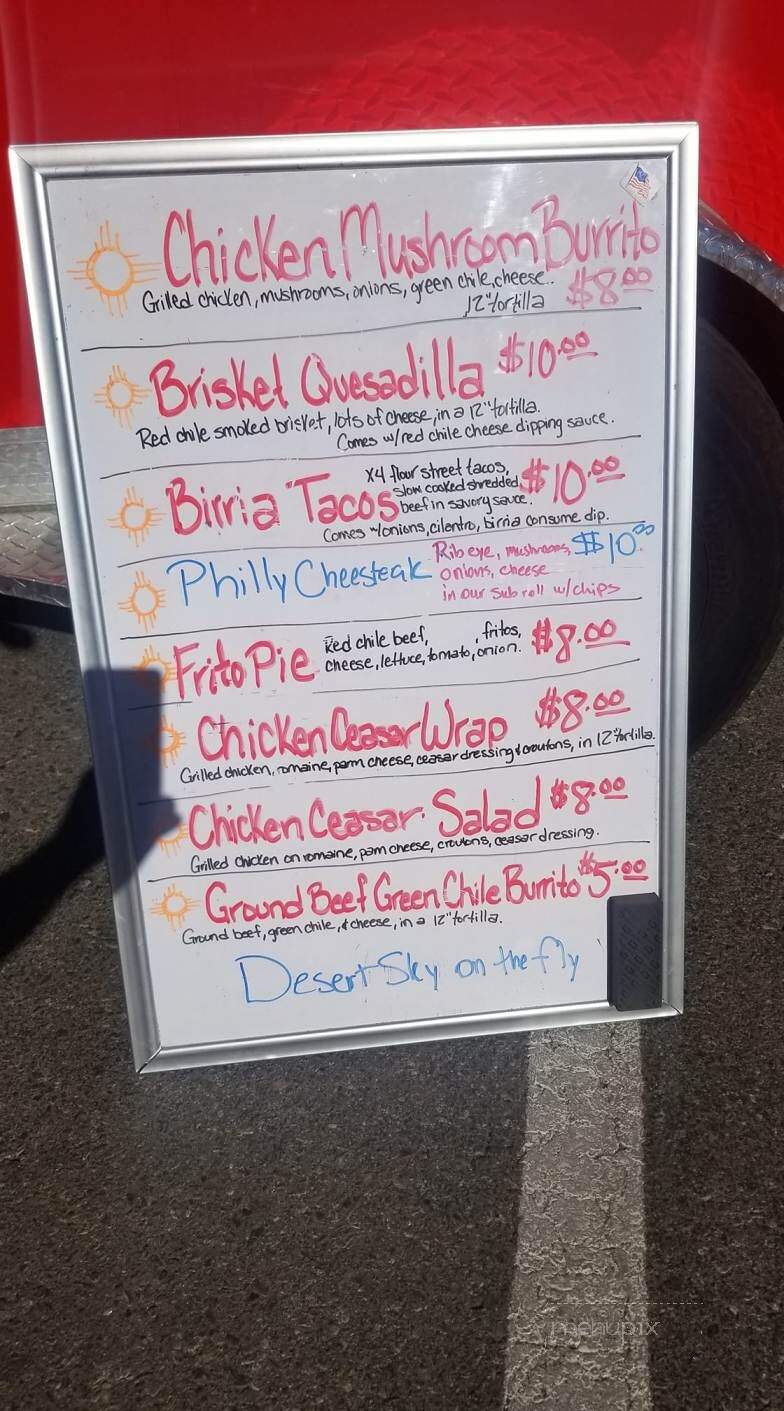 Chicken Mushroom Burrito
Grilled chicken, mushrooms, onions, green chile, cheese..
12" tortilla $8.00
Brisket Quesadilla $10.00
Red chile smoked brisket, lots of cheese, in a 12" tortilla.
Comes w/red chile cheese dipping sauce.
Birria Tacos x4 flour street tacos, $10.00
slow cooked shredded
beef in savory sauce.
Comes w/onions, cilantro, birria consume dip.
Philly Cheesteak Rib eye, mushrooms, $10.00
onions, cheese
in our sub roll w/chips
Frito Pie Red chile beef, , fritos, $8.00
cheese, lettuce, tomato, onion.
Chicken Ceasar Wrap $8.00
Grilled chicken, romaine, parm cheese, ceasar dressing & croutons, in 12" tortilla.
Chicken Ceasar Salad $8.00
Grilled chicken on romaine, parm cheese, croutons, ceasar dressing.
Ground Beef Green Chile Burrito $5.00
Ground beef, green chile, & cheese, in a 12" tortilla.
Desert Sky on the fly
menupix